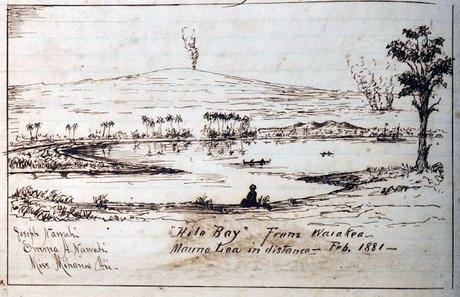 Joseph Nawahi
Emma A. Nawahi
Miss
"Hilo Bay" From Waiakea
Mauna Loa in distance – Feb. 1881 –